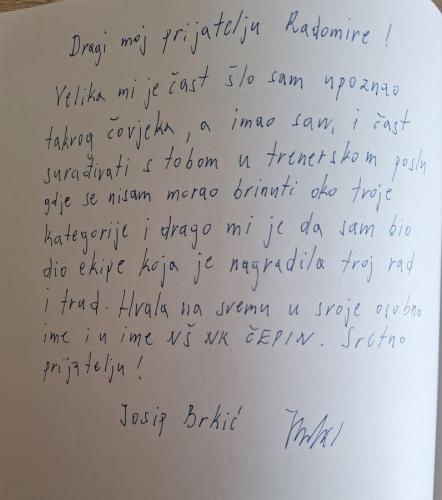 Dragi moj prijatelju Radomire!
Velika mi je čast što sam upoznao
takvog čovjeka, a imao sam i čast
surađivati s tobom u trenerskom poslu
gdje se nisam morao brinuti oko tvoje
kategorije i drago mi je da sam bio
dio ekipe koja je nagradila tvoj rad
i trud. Hvala na svemu u svoje osobno
ime i u ime NŠ NK ČEPIN. Sretno
prijatelju!
Josip Brkić